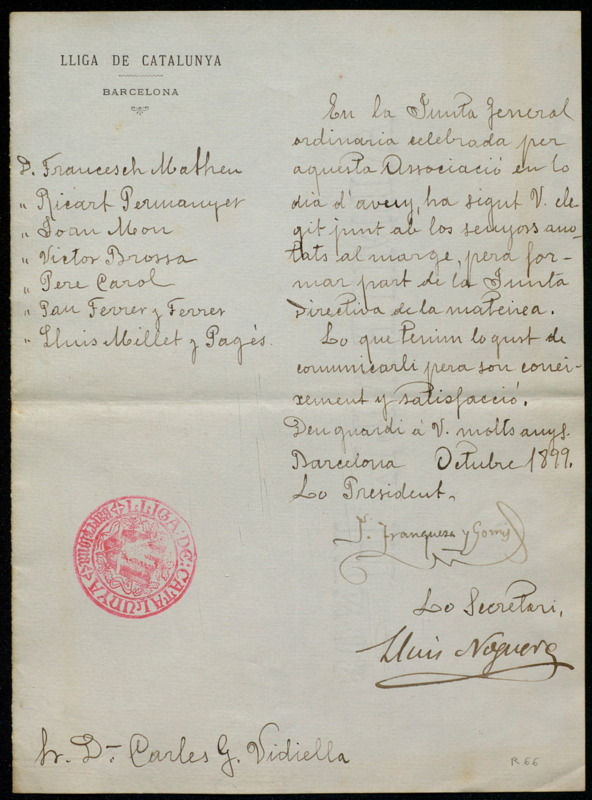 LLIGA DE CATALUNYA
BARCELONA
D. Francesch Matheu
" Ricart Permanyer
" Joan Mon
" Victor Brossa
" Pere Carol
" Pau Ferrer y Ferrer
" Lluis Millet y Pagés.
En la Junta general
ordinaria celebrada per
aquesta Associació en lo
dia d'avuy, ha sigut V. ele-
git junt ab los senyors ano-
tats al marge, pera for-
mar part de la Junta
Directiva de la mateixa.
Lo que tenim lo gust de
comunicarli pera son conei-
xement y satisfacció.
Deu guardi á V. molts anys.
Barcelona Octubre 1899.
Lo President,
J. Franquesa y Gomis
Lo Secretari,
Lluis Noguera
LLIGA DE CATALUNYA BARCELONA
Sr. Dn. Carles G. Vidiella
R 66